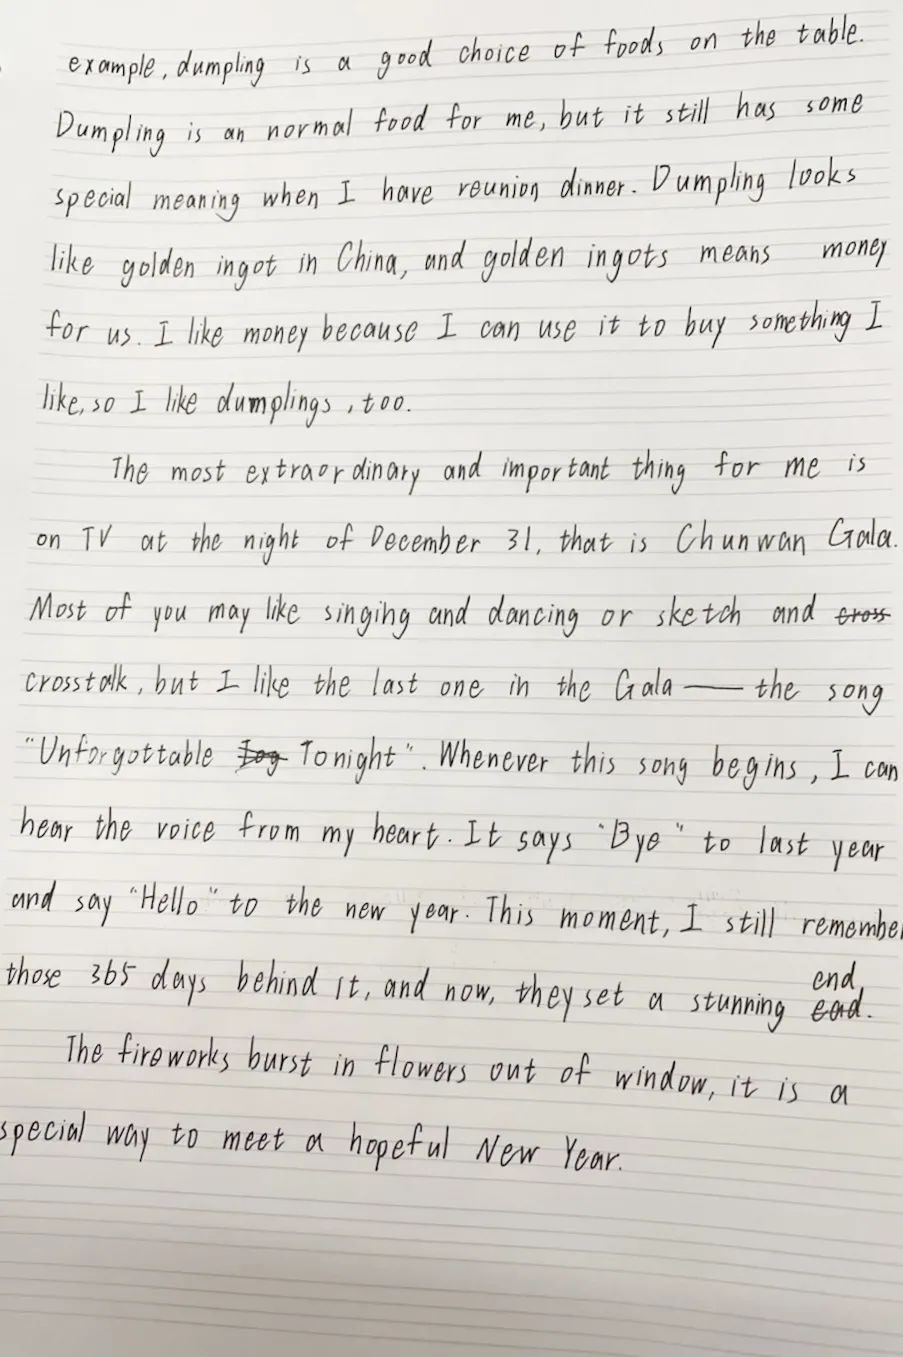 example, dumpling is a good choice of foods on the table.
Dumpling is an normal food for me, but it still has some
special meaning when I have reunion dinner. Dumpling looks
like golden ingot in China, and golden ingots means money
for us. I like money because I can use it to buy something I
like, so I like dumplings, too.
The most extraordinary and important thing for me is
on TV at the night of December 31, that is Chunwan Gala.
Most of you may like singing and dancing or sketch and cross
crosstalk, but I like the last one in the Gala — the song
"Unforgottable Tonight". Whenever this song begins, I can
hear the voice from my heart. It says "Bye" to last year
and say "Hello" to the new year. This moment, I still remember
those 365 days behind it, and now, they set a stunning end.
The fireworks burst in flowers out of window, it is a
special way to meet a hopeful New Year.